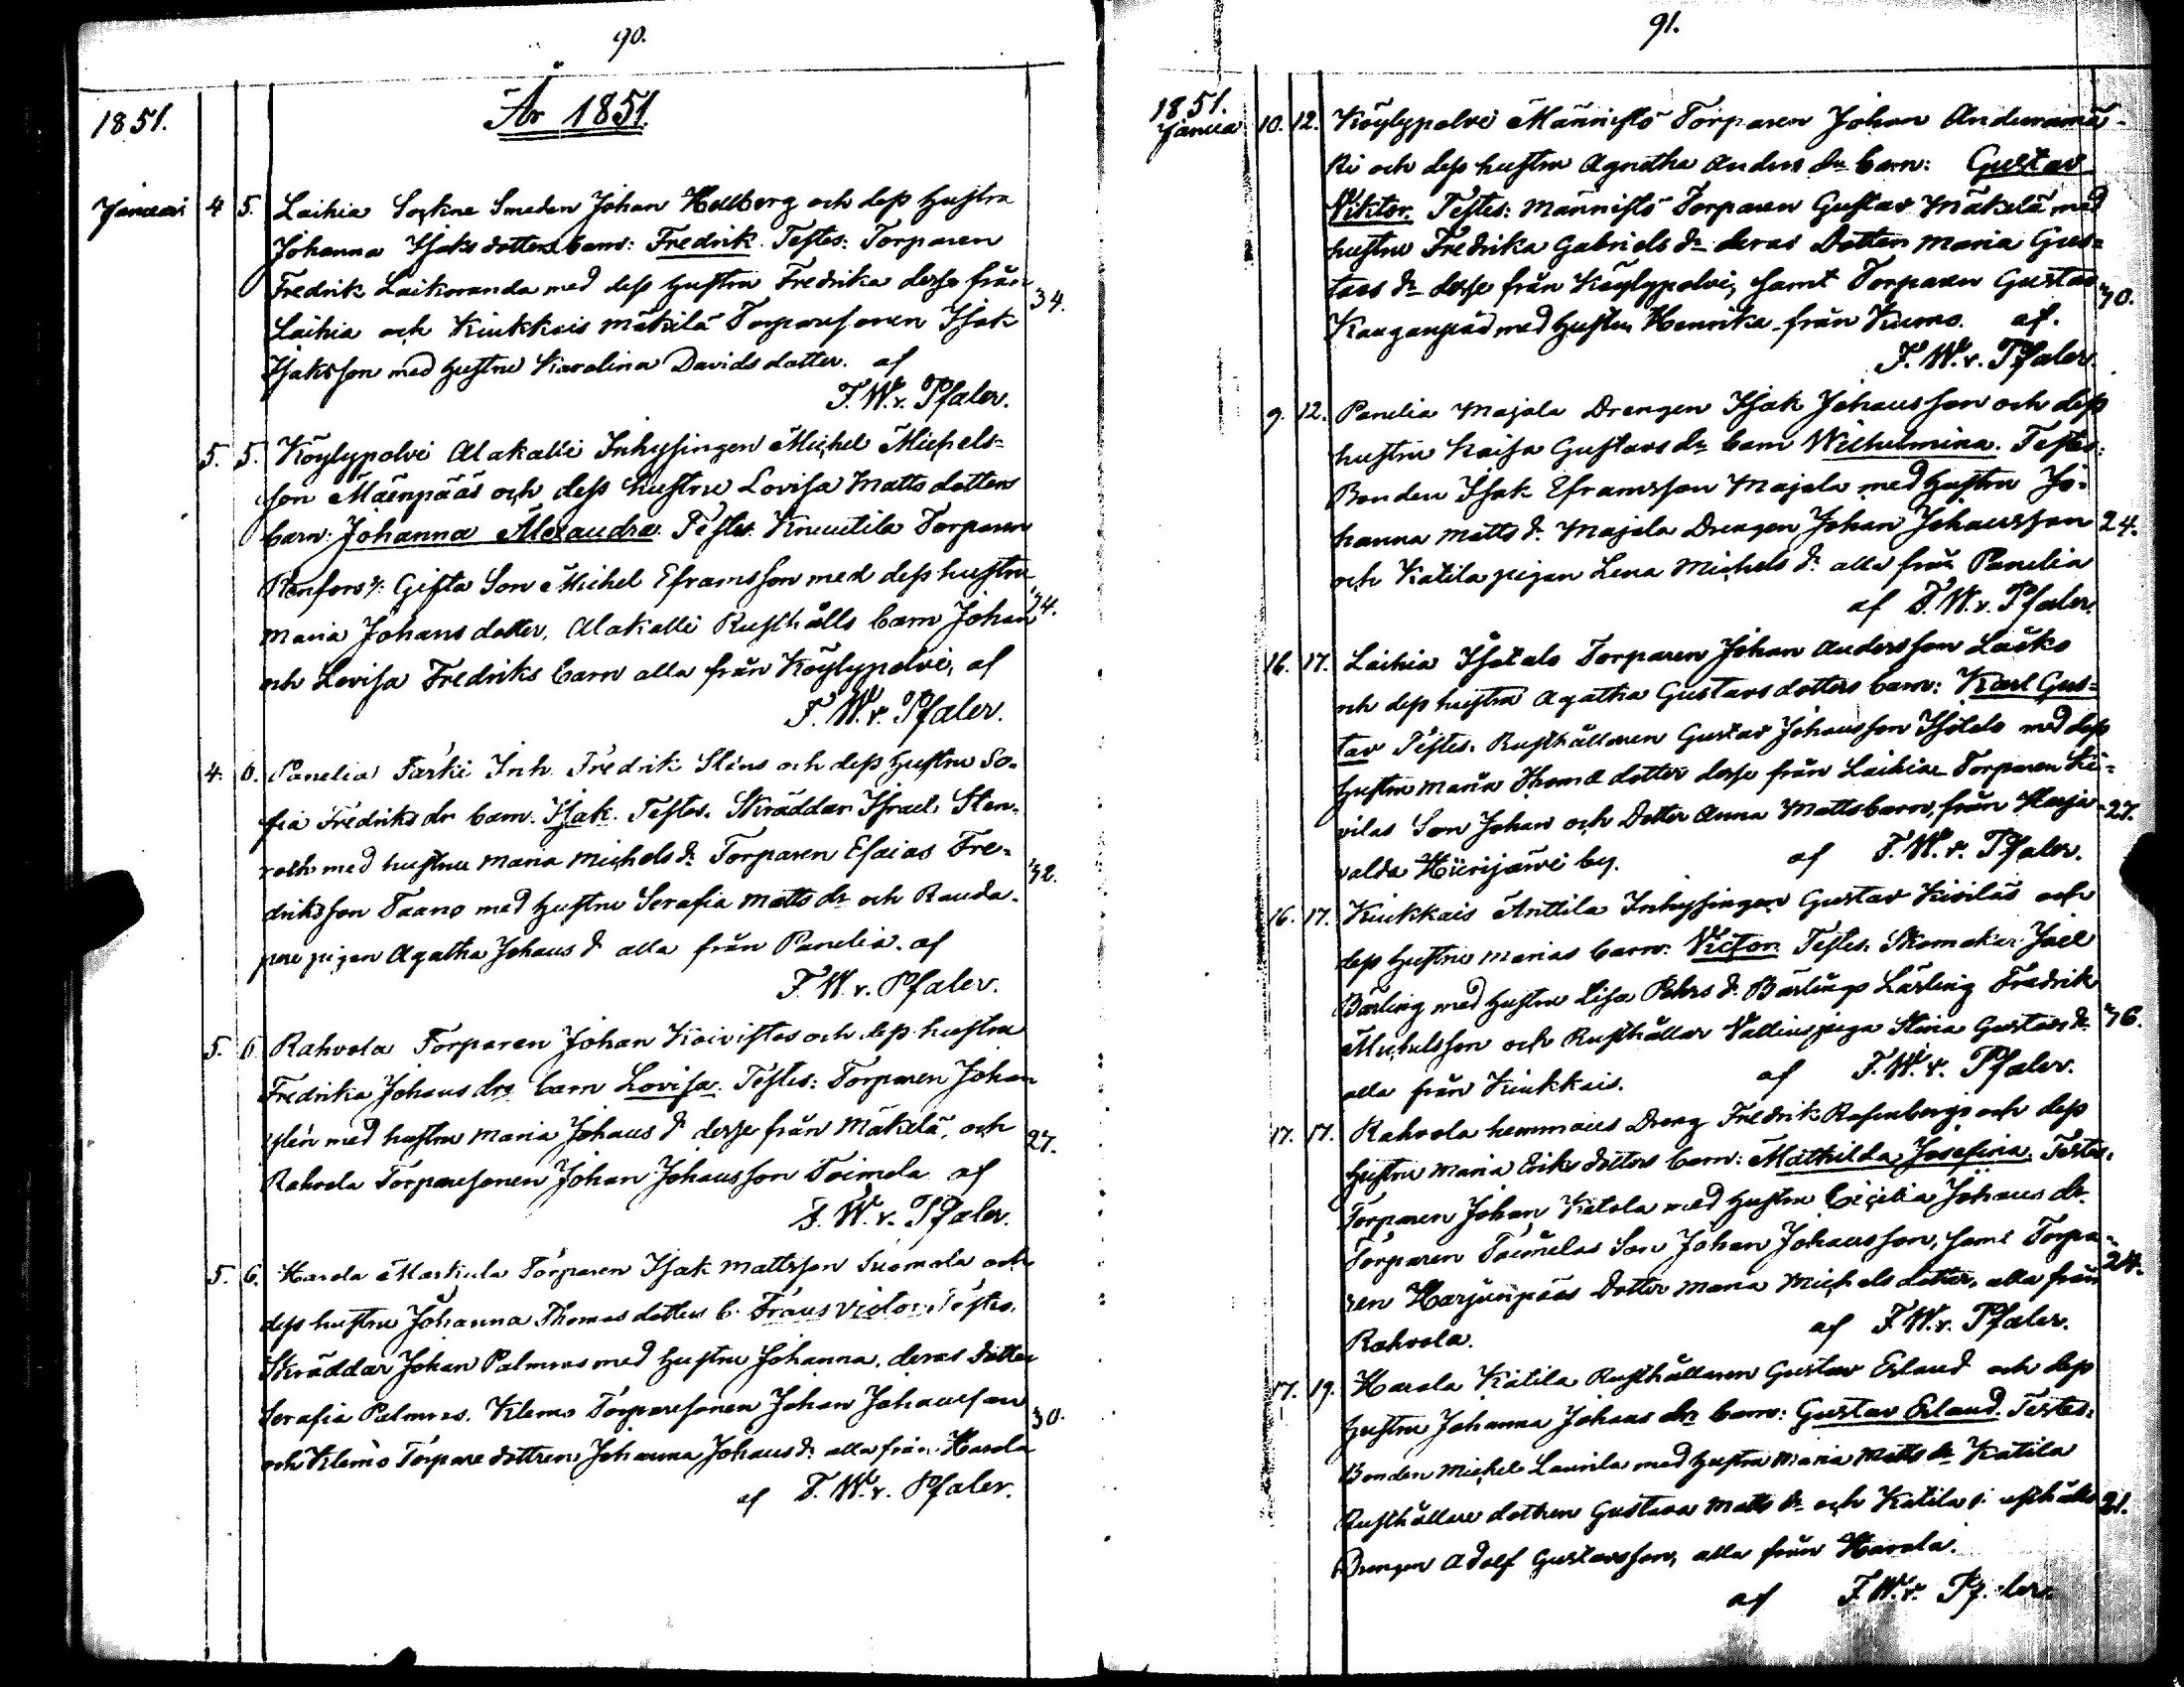 90.
År 1851.
1851.
Januari 4 5. Laihia Sockne Smeden Johan Hellberg och dess hustru
Johanna Isaks dotters barn: Fredrik. Testes: Torparen
Fredrik Laikoranda med dess hustru Fredrika desse från
Laihia och Kiukkais Mäkilä Torparesonen Isak 34.
Isaksson med hustru Karolina Davidsdotter. af
F. W. v. Pfaler.
5. 5. Köylypolvi Alakalli Inhysingen Michel Michels-
son Mäenpääs och dess hustru Lovisa Matts dotters
barn: Johanna Alexandra. Testes. Knuutila Torparen
Renfors's Gifta Son Michel Eframsson med dess hustru
Maria Johans dotter, Alakalli Rusthålls barn Johan 34.
och Lovisa Fredriks barn alla från Köylypolvi, af
F. W. v. Pfaler.
4. 6. Panelia Tarki Inh. Fredrik Sténs och dess hustru So-
fia Fredriks dr barn. Isak. Testes. Skräddar Israel Sten-
roth med hustru Maria Michels d. Torparen Esaias Fre-
driksson Taano med hustru Serafia Matts dr och Rauda- 32.
pere pigan Agatha Johans d. alla från Panelia. af
F. W. v. Pfaler.
5. 6 Rahvola Torparen Johan Koivistos och dess hustru
Fredrika Johans drs barn Lovisa. Testes: Torparen Johan
Ylén med hustru Maria Johans d. desse från Mäkelä, och 27.
Rahvola Torparesonen Johan Johansson Toimela af
F. W. v. Pfaler.
5. 6. Harola Markula Torparen Isak Mattsson Suomola och
dess hustru Johanna Thomas dotters b. Frans Victor. Testes.
Skräddar Johan Palmros med hustru Johanna. deras dotter
Serafia Palmros. Klemo Torparesonen Johan Johansson 30.
och Klemo Torpare dottren Johanna Johans d. alla från Harola
af F. W. v. Pfaler.
91.
1851.
Janua 10. 12. Köylypolvi Männistö Torparen Johan Anduramä-
ki och dess hustru Agnetha Anders dr barn: Gustav
Viktor. Testes: Männistö Torparen Gustav Mäkelä med
hustru Fredrika Gabriels dr deras Dotter Maria Gus-
tavs dr desse från Köylypolvi, samt Torparen Gustav 30.
Kauganpää med hustru Henrika från Kumo. af.
F. W. v. Pfaler.
9. 12. Panelia Majala Drengen Isak Johansson och dess
hustru Kaisa Gustavs dr barn Wilhelmina. Testes:
Bonden Isak Eframsson Majala med hustru Jo-
hanna Matts d. Majala Drengen Johan Johansson 24.
och Katila pigan Lena Michels d. alla från Panelia
af F. W. v. Pfaler.
16. 17. Laihia Isotalo Torparen Johan Andersson Lasko
och dess hustru Agatha Gustavs dotters barn: Karl Gus-
tav Testes. Rusthållaren Gustav Johansson Isotalo med dess
hustru Maria Thomæ dotter desse från Laihia Torparen Ki-
vilas Son Johan och Dotter Anna Matts barn, från Harja- 27.
valda Hiirijärvi by. af F. W. v. Pfaler.
16. 17. Kiukkais Anttila Inhysingen Gustav Kiviläs och
dess hustru Marias barn: Victor. Testes. Skomakar Joel
Bärling med hustru Lisa Pehrs d. Bärlings Lärling Fredrik
Michelsson och Rusthållar Vallins piga Stina Gustavs d. 36.
alla från Kiukkais. af F. W. v. Pfaler.
17. 17. Rahvola hemmans Dreng Fredrik Rosenbergs och dess
hustru Maria Eriks dotters barn: Mathilda Josefina. Testes.
Torparen Johan Ketola med hustru Cecilia Johans dr.
Torparen Toimelas Son Johan Johansson, samt Torpa-
ren Harjunpääs Dotter Maria Michels dotter, alla från 24.
Rahvola. af F. W. v. Pfaler.
17. 19. Harola Katila Rusthållaren Gustav Erland och dess
hustru Johanna Johans drs barn: Gustav Erland. Testes:
Bonden Michel Laurila med hustru Maria Matts dr Katila
Rusthållare dottren Gustava Matts dr och Katila rusthålls 21.
Drengen Adolf Gustavsson, alla från Harola.
af F. W. v. Pfaler.